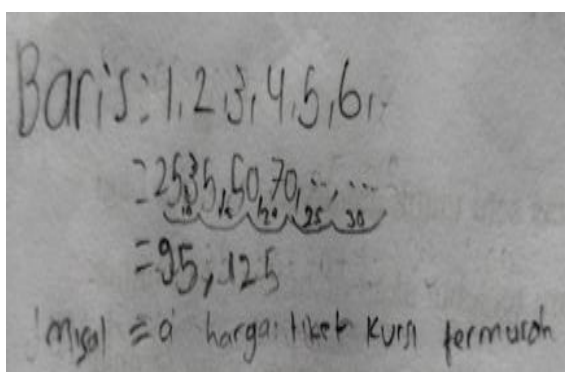 Baris: 1, 2, 3, 4, 5, 6, ..
= 25, 35, 50, 70, ..., ...
10 15 20 25 30
= 95, 125
Misal = a harga tiket kursi termurah